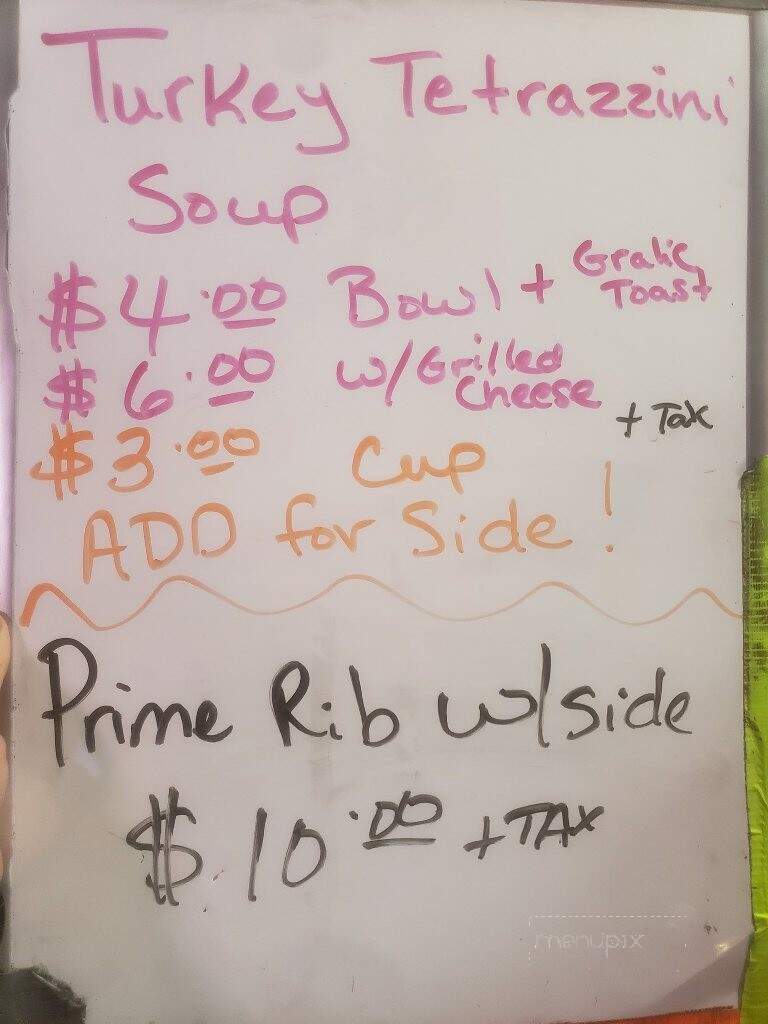 Turkey Tetrazzini
Soup
$4.00 Bowl + Gralic Toast
$6.00 w/Grilled Cheese
+ Tax
$3.00 Cup
ADD for Side!
Prime Rib w/side
$10.00 + TAX
menupix